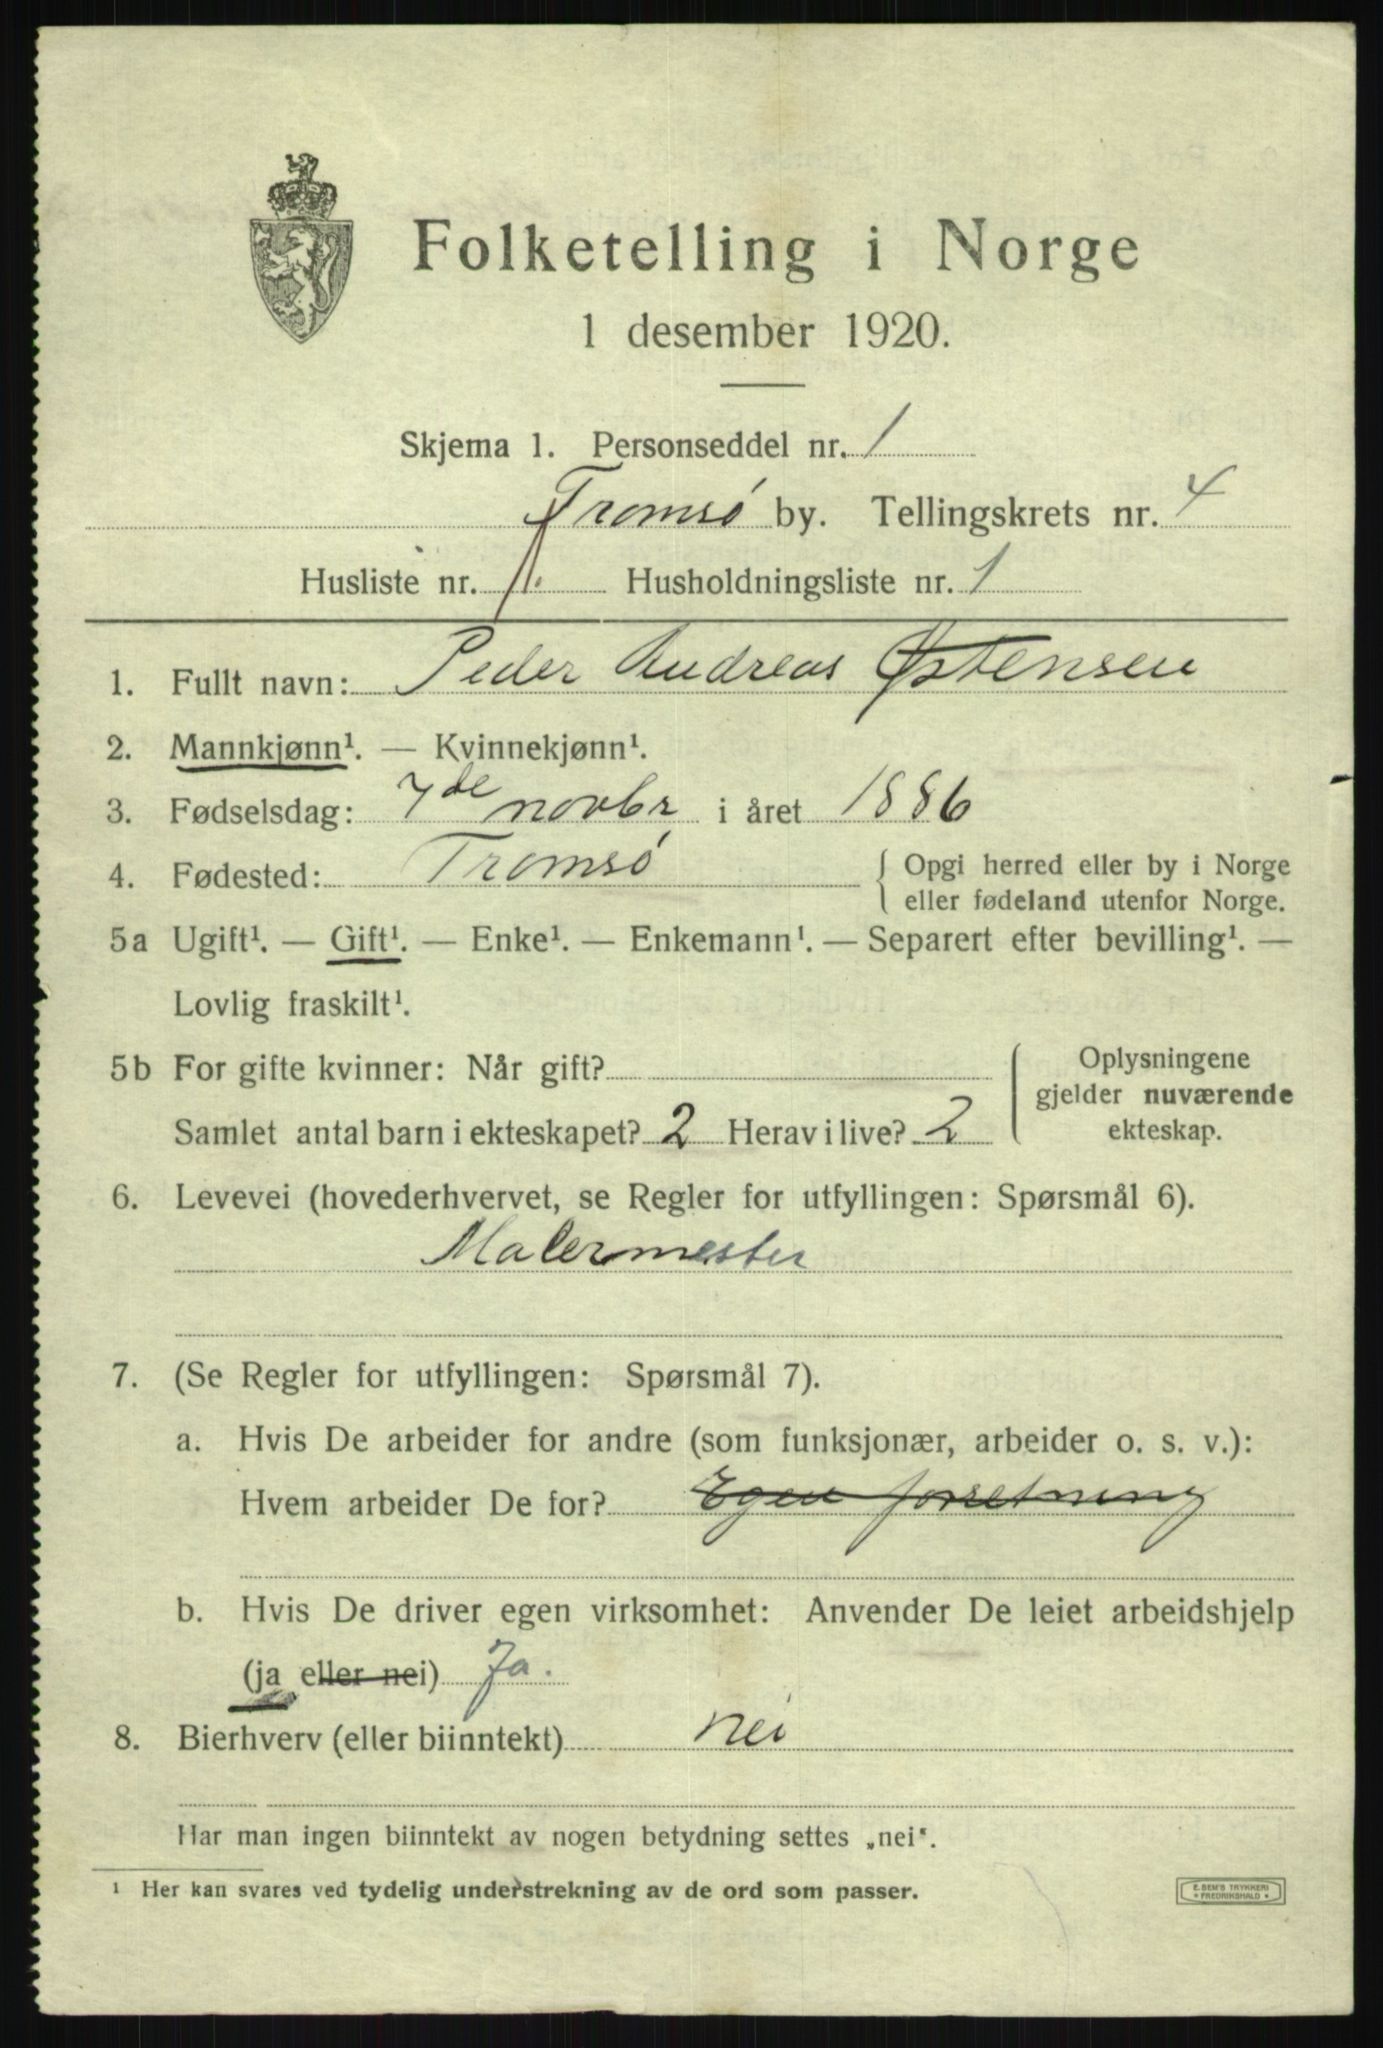 Folketelling i Norge
1 desember 1920.
Skjema 1. Personseddel nr. 1
Tromsø by. Tellingskrets nr. 4
Husliste nr. 1. Husholdningsliste nr. 1
1. Fullt navn: Peder Andreas Østensen
2. Mannkjønn¹. — Kvinnekjønn¹.
3. Fødselsdag: 7de novbr i året 1886
4. Fødested: Tromsø { Opgi herred eller by i Norge
eller fødeland utenfor Norge.
5a Ugift¹. — Gift¹. — Enke¹. — Enkemann¹. — Separert efter bevilling¹. —
Lovlig fraskilt¹.
5b For gifte kvinner: Når gift? { Oplysningene
gjelder nuværende
Samlet antal barn i ekteskapet? 2 Herav i live? 2 ekteskap.
6. Levevei (hovederhvervet, se Regler for utfyllingen: Spørsmål 6).
Malermester
7. (Se Regler for utfyllingen: Spørsmål 7).
a. Hvis De arbeider for andre (som funksjonær, arbeider o. s. v.):
Hvem arbeider De for? Egen forretning
b. Hvis De driver egen virksomhet: Anvender De leiet arbeidshjelp
(ja eller nei) Ja.
8. Bierhverv (eller biinntekt) nei
Har man ingen biinntekt av nogen betydning settes „nei“.
¹ Her kan svares ved tydelig understrekning av de ord som passer.
E. SEM'S TRYKKERI
* FREDRIKSHALD *